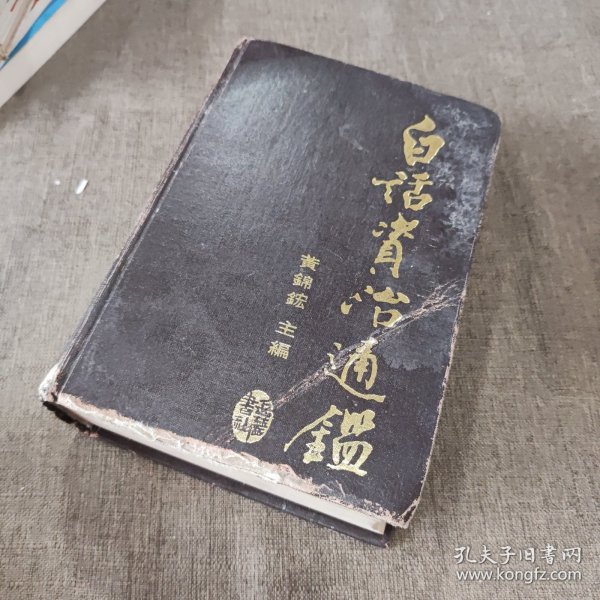 白話資治通鑑
黃錦鋐 主編
岳麓書社
孔夫子旧书网
www.kongfz.com